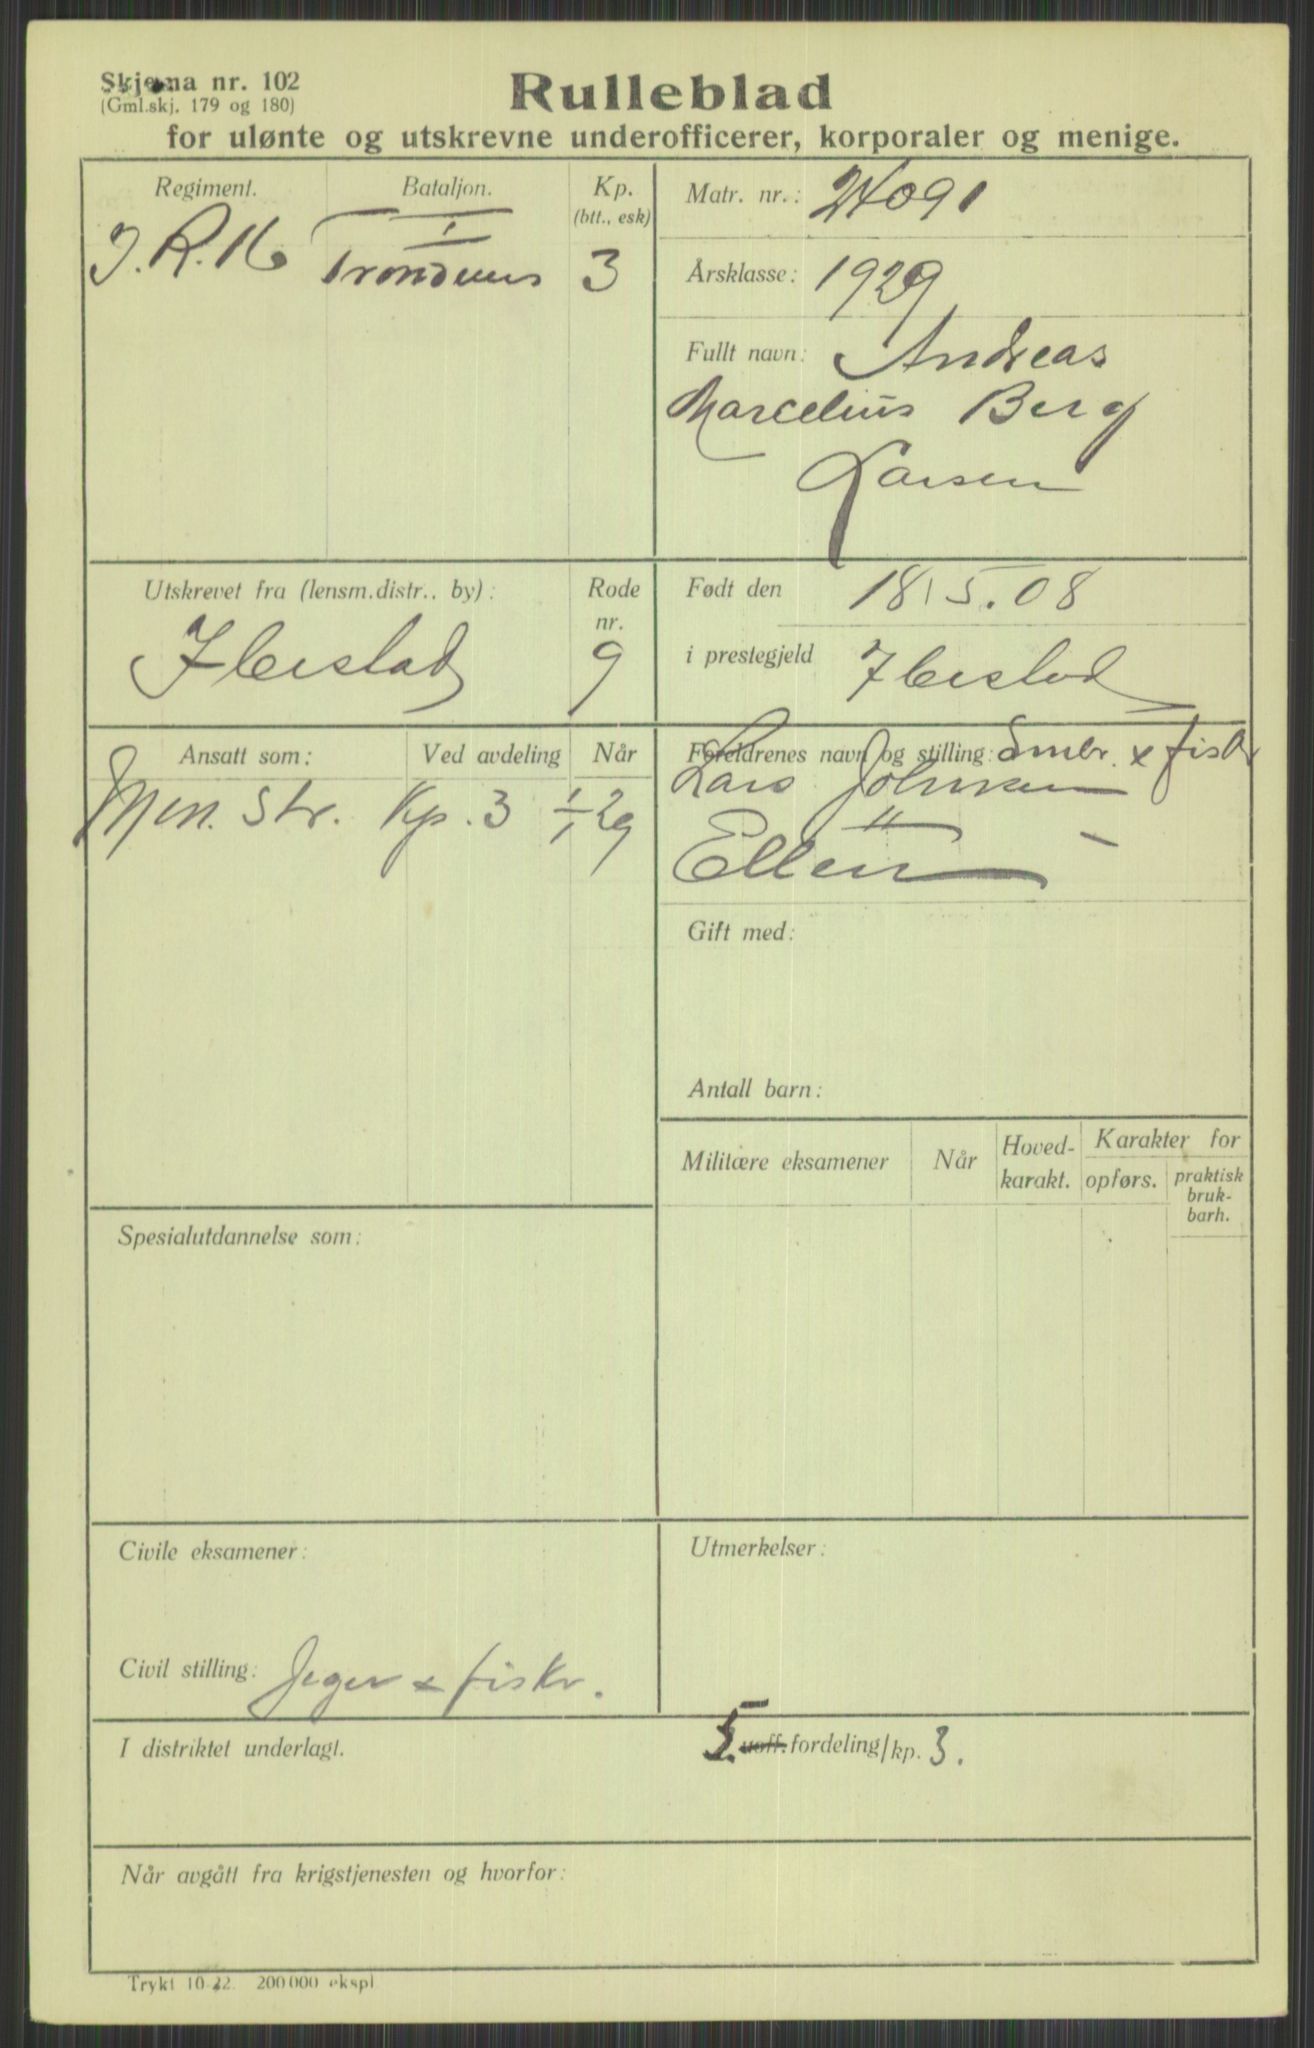 Skjema nr. 102
(Gml.skj. 179 og 180)
Rulleblad
for ulønte og utskrevne underofficerer, korporaler og menige.
Regiment. Bataljon. Kp. (btt., esk)
J. R. 16 I Trondenes 3
Matr. nr.: 24091
Årsklasse: 1929
Fullt navn: Andreas
Marcelius Berg
Larsen
Utskrevet fra (lensm.distr., by): Rode nr.
Ibestad 9
Født den 18/5.08
i prestegjeld Ibestad
Ansatt som: Ved avdeling Når
Men. str. Kp. 3 1/1 29
Foreldrenes navn og stilling: Småbr. x fiskr
Lars Johnsen
Ellen " -
Gift med:
Antall barn:
Militære eksamener Når Hoved-karakt. Karakter for
opførs. praktisk bruk-barh.
Spesialutdannelse som:
Civile eksamener:
Utmerkelser:
Civil stilling: Jeger x fiskr.
I distriktet underlagt.
I. uoff. fordeling/kp. 3.
Når avgått fra krigstjenesten og hvorfor:
Trykt 10-22. 200 000 ekspl